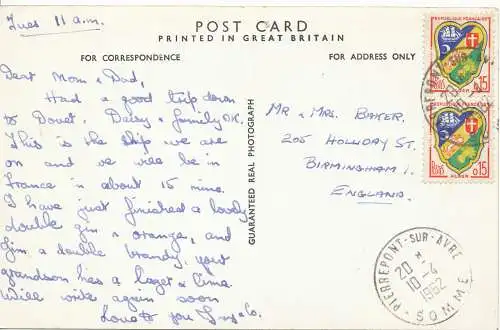 Tues 11 a.m.
POST CARD
PRINTED IN GREAT BRITAIN
FOR CORRESPONDENCE
FOR ADDRESS ONLY
Dear Mom & Dad,
Had a good trip down
to Dover, Daisy & family OK.
This is the ship we are
on and we will be in
France in about 15 mins.
I have just finished a lovely
double gin & orange, and
Jim a double brandy, your
grandson has a lager & lime.
Will write again soon
Love to you
& Co.
GUARANTEED REAL PHOTOGRAPH
MR & MRS. BAKER,
205 HOLLIDAY ST.
BIRMINGHAM 1.
ENGLAND.
REPUBLIQUE FRANÇAISE
POSTES
0,15
ALGER
REPUBLIQUE FRANÇAISE
POSTES
0,15
ALGER
PIERREPONT-SUR-AVRE
20 H
10-4
1962
SOMME